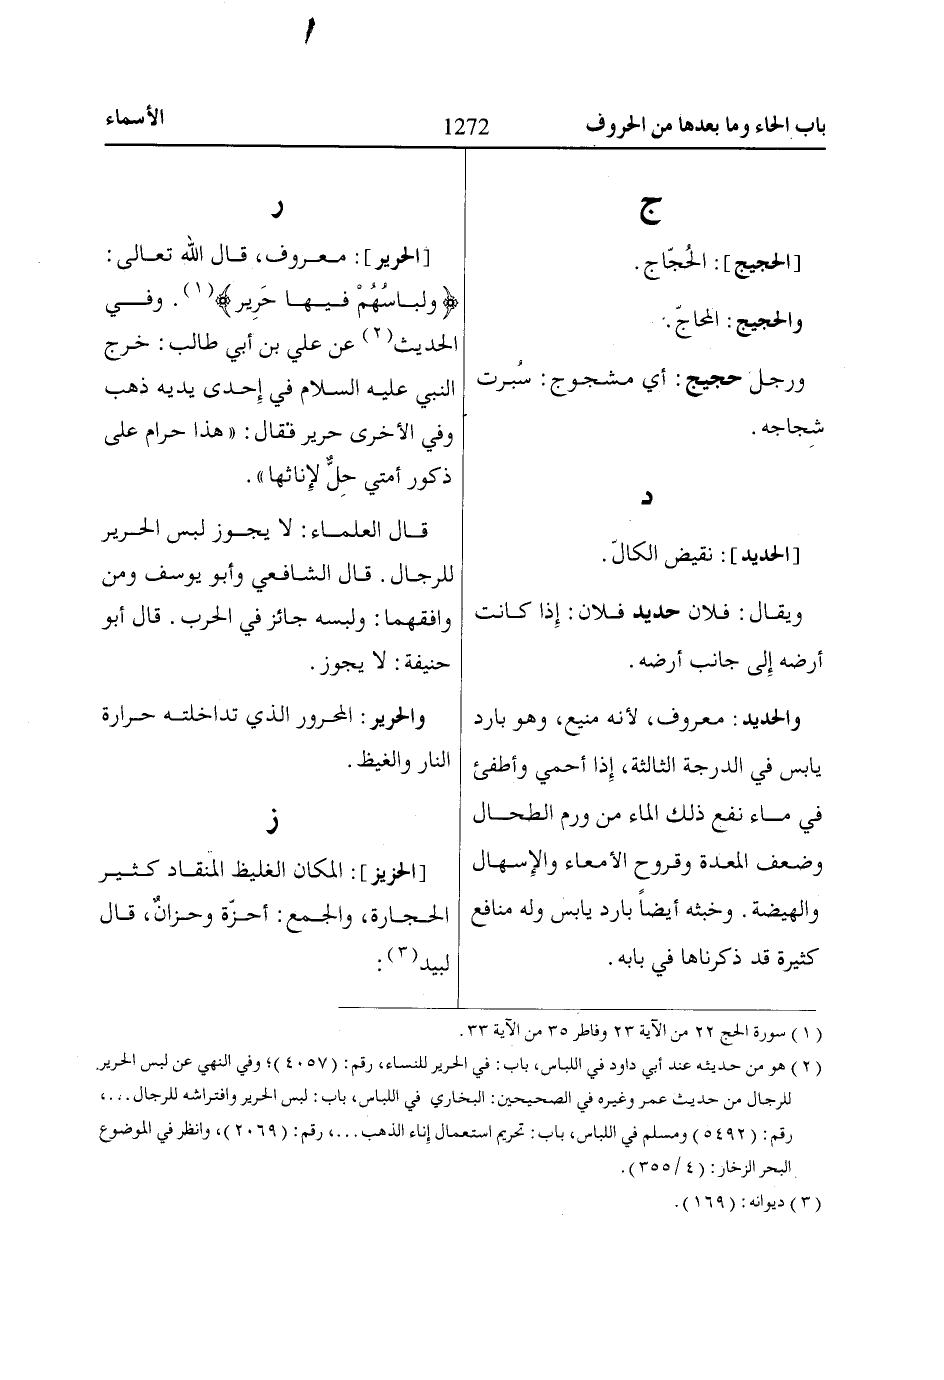 باب الحاء وما بعدها من الحروف
1272
الأسماء
ج
[الحجيج]: الحُجّاج.
والحجيج: المحاجّ.
ورجل حجيج: أي مشجوج: سُبرت
شِجاجه.
د
[الحديد]: نقيض الكالّ.
ويقال: فلان حديد فلان: إذا كانت
أرضه إلى جانب أرضه.
والحديد: معروف، لأنه منيع، وهو بارد
يابس في الدرجة الثالثة، إذا أحمي وأطفئ
في ماء نفع ذلك الماء من ورم الطحال
وضعف المعدة وقروح الأمعاء والإسهال
والهيضة. وخبثه أيضاً بارد يابس وله منافع
كثيرة قد ذكرناها في بابه.
ر
[الحرير]: معروف، قال الله تعالى:
﴿ولباسُهُمْ فيها حَرِير﴾(١). وفي
الحديث(٢) عن علي بن أبي طالب: خرج
النبي عليه السلام في إحدى يديه ذهب
وفي الأخرى حرير فقال: «هذا حرام على
ذكور أمتي حِلٌّ لإناثها».
قال العلماء: لا يجوز لبس الحرير
للرجال. قال الشافعي وأبو يوسف ومن
وافقهما: ولبسه جائز في الحرب. قال أبو
حنيفة: لا يجوز.
والحرير: المحرور الذي تداخلته حرارة
النار والغيظ.
ز
[الحزيز]: المكان الغليظ المنقاد كثير
الحجارة، والجمع: أحزّة وحزانٌ، قال
لبيد(٣):
(١) سورة الحج ٢٢ من الآية ٢٣ وفاطر ٣٥ من الآية ٣٣.
(٢) هو من حديثه عند أبي داود في اللباس، باب: في الحرير للنساء، رقم: (٤٠٥٧)؛ وفي النهي عن لبس الحرير
للرجال من حديث عمر وغيره في الصحيحين: البخاري في اللباس، باب: لبس الحرير وافتراشه للرجال ...،
رقم: (٥٤٩٢) ومسلم في اللباس، باب: تحريم استعمال إناء الذهب ...، رقم: (٢٠٦٩)، وانظر في الموضوع
البحر الزخار: (٤/٣٥٥).
(٣) ديوانه: (١٦٩).